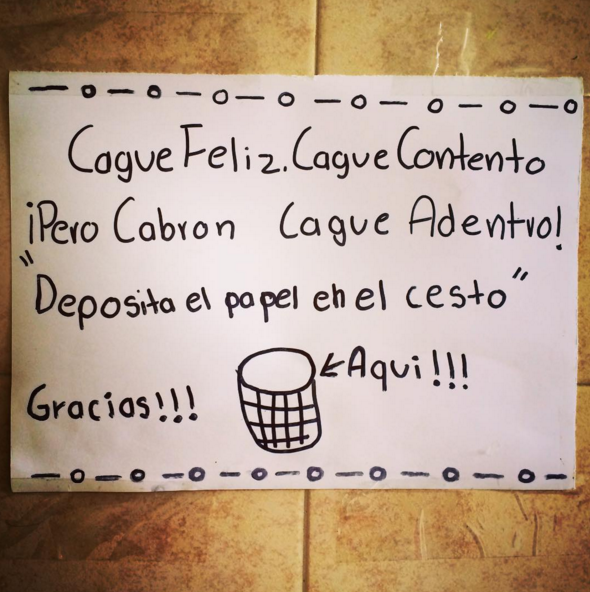 Cague Feliz. Cague Contento
¡Pero Cabron Cague Adentro!
"Deposita el papel en el cesto"
←Aqui!!!
Gracias!!!